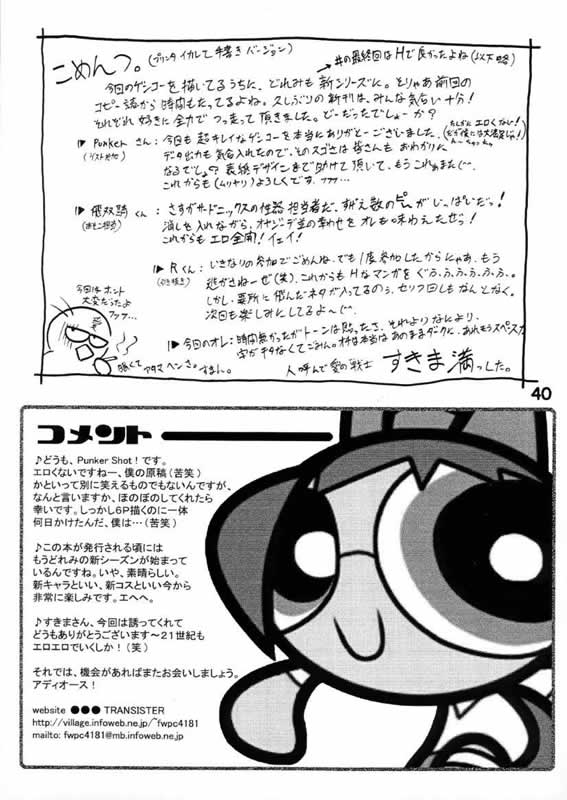 こめんつ。(プリンタ イカレて 手書き バージョン)
→♯の最終回はHで良かったよね(以下略)
今回のゲンコーを描いてるうちに、どれみも新シリーズに。とりゃあ前回の
コピー誌から時間もたってるよね。久しぶりの新刊は、みんな気合い十分!
それぞれ好きに全力でつっ走って頂きました。どーだったでしょーか?
▶Punkerさん:今回も超キレイなゲンコーを本当にありがとーございました。
データ出力も気合入れたので、そのスゴさは皆さんもおわかりに
なるでしょ?表紙デザインまで助けて頂いて、もう
これからも(ムリヤリ)よろしくです。フフフ…
くん:さすがサードニックスの性器担当者だ。
消しを入れながら、オヤジーデ並の幸わせをオレも味わえたぜっ!
これからもエロ全開!イェイ!
▶Rくん:いきなりの参加でごめんね。でも1度参加したからにゃあ、もう
逃がさねーぜ(笑)。これからもHなマンガをぐふふふふふふ。
しかし、要所に悩んだネタが入ってるのぅ、セリフ回しもなんとなく。
次回も楽しみにしてるよ〜(⌒
今回はホント
大変だったよ
フフフ…
▶今回のオレ:時間無かったがトーンは貼ったさ。それよりなにより、
字がキチなくてごめん。オチは本当はあのままダークに、あれもうスペースが
眠くて アタマ ヘンさ。すまん。
人呼んで愛の戦士 すきま満っした。
40
コメント
♪どうも、Punker Shot!です。
エロくないですねー、僕の原稿(苦笑)
かといって別に笑えるものでもないんですが、
なんと言いますか、ほのぼのしてくれたら
幸いです。しっかし6P描くのに一体
何日かけたんだ、僕は…(苦笑)
♪この本が発行される頃には
もうどれみの新シーズンが始まって
いるんですね。いや、素晴らしい。
新キャラといい、新コスといい今から
非常に楽しみです。エヘヘ。
♪すきまさん、今回は誘ってくれて
どうもありがとうございます〜21世紀も
エロエロでいくしか!(笑)
それでは、機会があればまたお会いしましょう。
アディオース!
website ●●● TRANSISTER
http://village.infoweb.ne.jp/~fwpc4181
mailto: fwpc4181@mb.infoweb.ne.jp